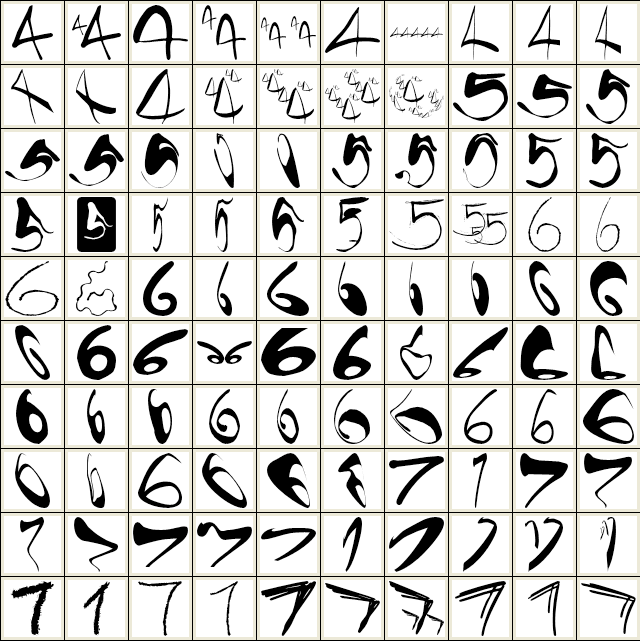 4 4 4 4 4 4 4 4 4 4
4 4 4 4 4 4 4 5 5 5
5 5 5 5 5 5 5 5 5 5
5 5 5 5 5 5 5 5 6 6
6 6 6 6 6 6 6 6 6 6
6 6 6 6 6 6 6 6 6 6
6 6 6 6 6 6 6 6 6 6
6 6 6 6 6 6 7 7 7 7
7 7 7 7 7 7 7 7 7 7
7 7 7 7 7 7 7 7 7 7